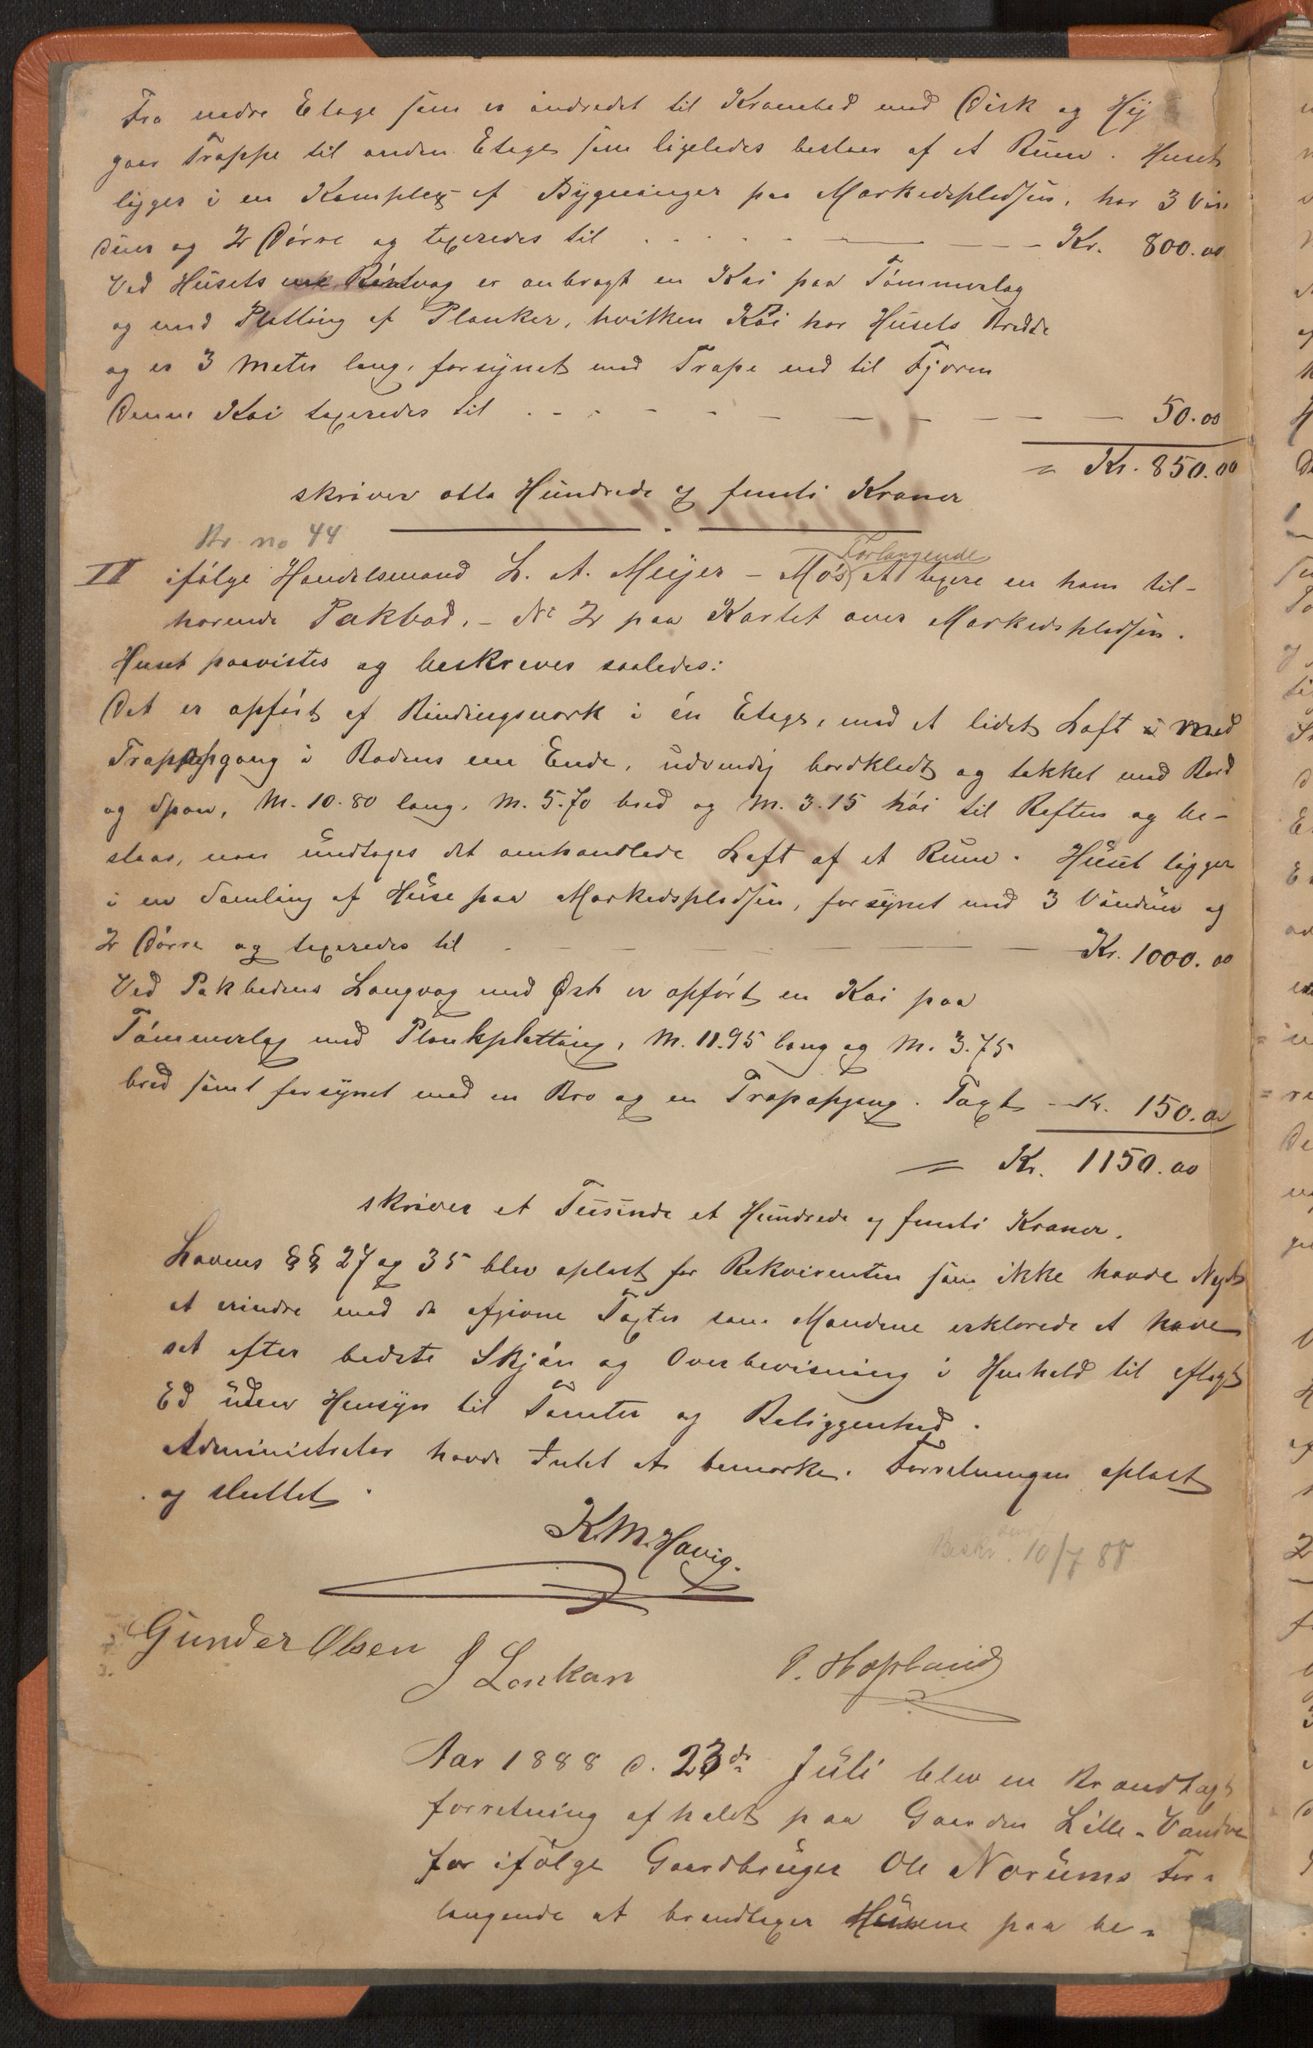 Fra nedre Etage som er indredet til Krambod med Disk og Hy
gaar Trappe til anden Etage som ligeledes bestaar af et Rum. Huset
ligger i en Komplex af Bygninger paa Markedspladsen, har 3 Vin
duer og 2 Dörre og taxeredes til . . . Kr. 800.00
Ved Husets er anbragt en Kai paa Tömmerlag
og med Platting af Planker, hvilken Kai har Husets Bredde
og er 3 Meter lang, forsynet med Trape ned til Fjæren
Denne Kai taxeredes til . . . 50.00
= Kr. 850.00
skriver otte Hundrede og femti Kroner
Br. no 44
II ifölge Handelsmand L. A. Meijer - Mo's Forlangende at taxere en ham til-
hørende Pakbod, - No 2 paa Kartet over Markedspladsen.
Huset paavistes og beskreves saaledes:
Det er opfört af Bindingsværk i én Etage, med et lidet Loft i med
Trappegang i Bodens ene Ende, udvendig bordklædt og tækket med Bord
og Spon, M. 10.80 lang, M. 5.70 bred og M. 3.15 höi til Raften og be-
staar, naar undtages det omhandlede Loft af et Rum. Huset ligger
i en Samling af Huse paa Markedspladsen, forsynet med 3 Vinduer og
2 Dörre og taxeredes til - Kr. 1000.00
Ved Pakbodens Langvæg mod Øst er opfört en Kai paa
Tömmerlag med Plankplatting, M. 11.95 lang og M. 3.75
bred samt forsynet med en Bro og en Trapopgang. Taxt - Kr. 150.00
= Kr. 1150.00
skriver et Tusinde et Hundrede og femti Kroner.
Lovens §§ 27 og 35 blev oplæst for Rekvirenten som ikke havde Noget
at erindre mod de afgivne Taxter som Mændene erklærede at have
sat efter bedste Skjön og Overbevisning i Henhold til aflagt
Ed uden Hensyn til Tomter og Beliggenhed.
Administrator havde Intet at bemærke. Forretningen oplæst
og sluttet.
K. M. Havig.
Beskr. 10/7 88
Gunder Olsen
J Lenkan
P. Hopland
Aar 1888 d. 23de Juli blev en Brandtaxt
forretning afholdt paa Gaarden Lille-Vandve
for ifölge Gaardbruger Ole Norums For-
langende at brandtaxere Husene paa be-